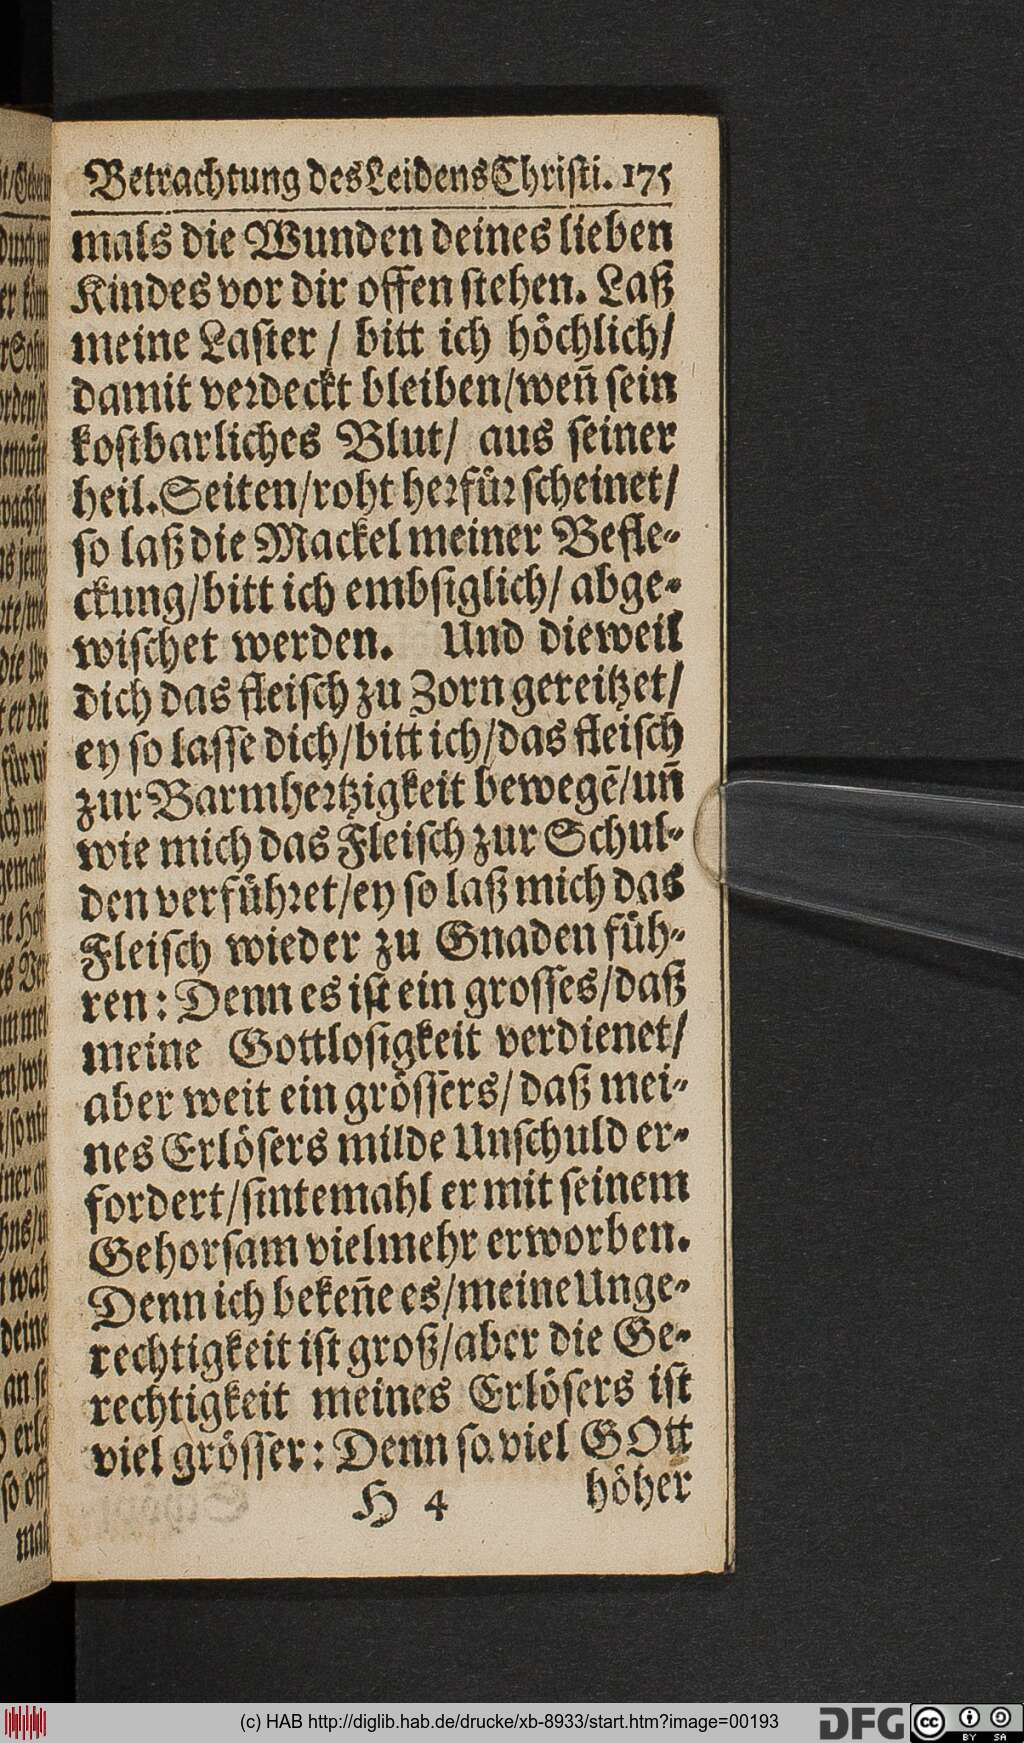 Betrachtung des Leidens Christi. 175
mals die Wunden deines lieben
Kindes vor dir offen stehen. Laß
meine Laster / bitt ich höchlich/
damit verdeckt bleiben/weñ sein
kostbarliches Blut/ aus seiner
heil. Seiten/roht herfür scheinet/
so laß die Mackel meiner Befle-
ckung/bitt ich embsiglich/ abge-
wischet werden. Und dieweil
dich das fleisch zu Zorn gereitzet/
ey so lasse dich/bitt ich/das fleisch
zur Barmhertzigkeit bewegē/uñ
wie mich das Fleisch zur Schul-
den verführet/ey so laß mich das
Fleisch wieder zu Gnaden füh-
ren: Denn es ist ein grosses/daß
meine Gottlosigkeit verdienet/
aber weit ein grössers/daß mei-
nes Erlösers milde Unschuld er-
fordert/sintemahl er mit seinem
Gehorsam vielmehr erworben.
Denn ich bekeñe es/meine Unge-
rechtigkeit ist groß/aber die Ge-
rechtigkeit meines Erlösers ist
viel grösser: Denn so viel GOtt
H 4 höher
(c) HAB http://diglib.hab.de/drucke/xb-8933/start.htm?image=00193
DFG cc BY SA